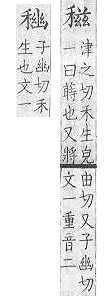 稵
津之切禾生皃
一曰蒔也又將
由切又子幽切
文一重音二
子幽切禾
生也文一